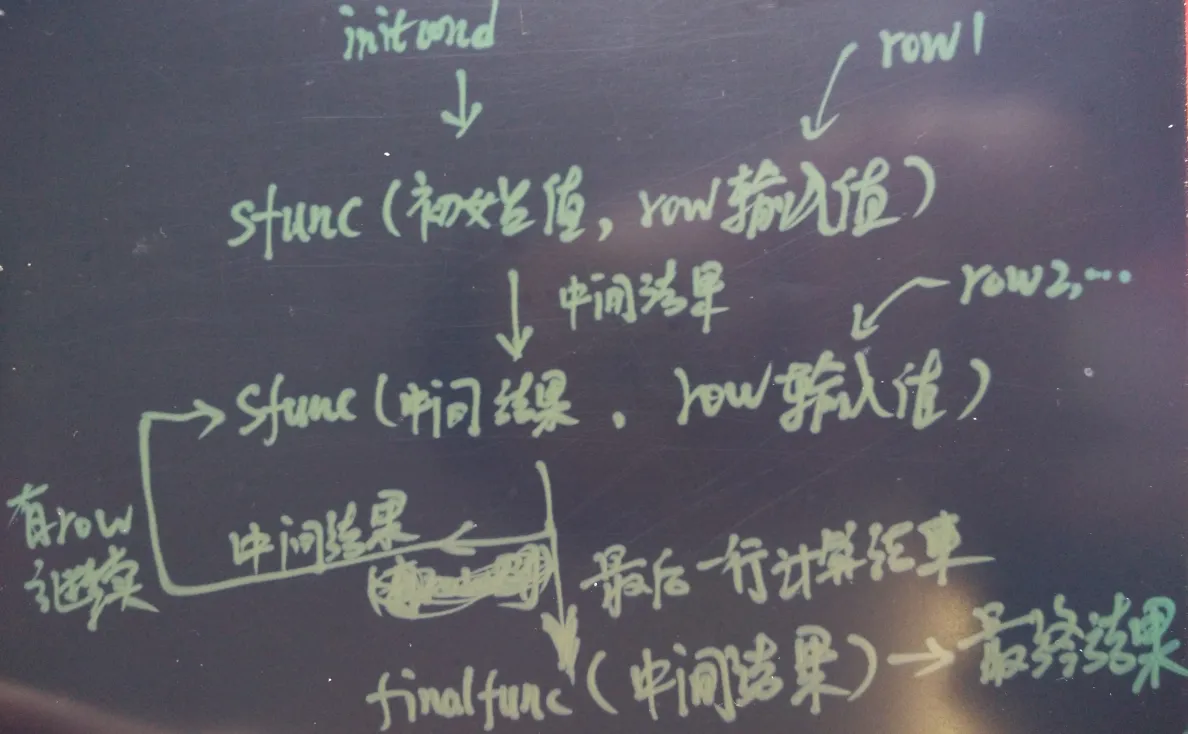 initcond
row1
sfunc(初始值,row输入值)
中间结果
row2,...
sfunc(中间结果、row输入值)
有row
继续
中间结果
最后一行计算结束
finalfunc(中间结果)→最终结果